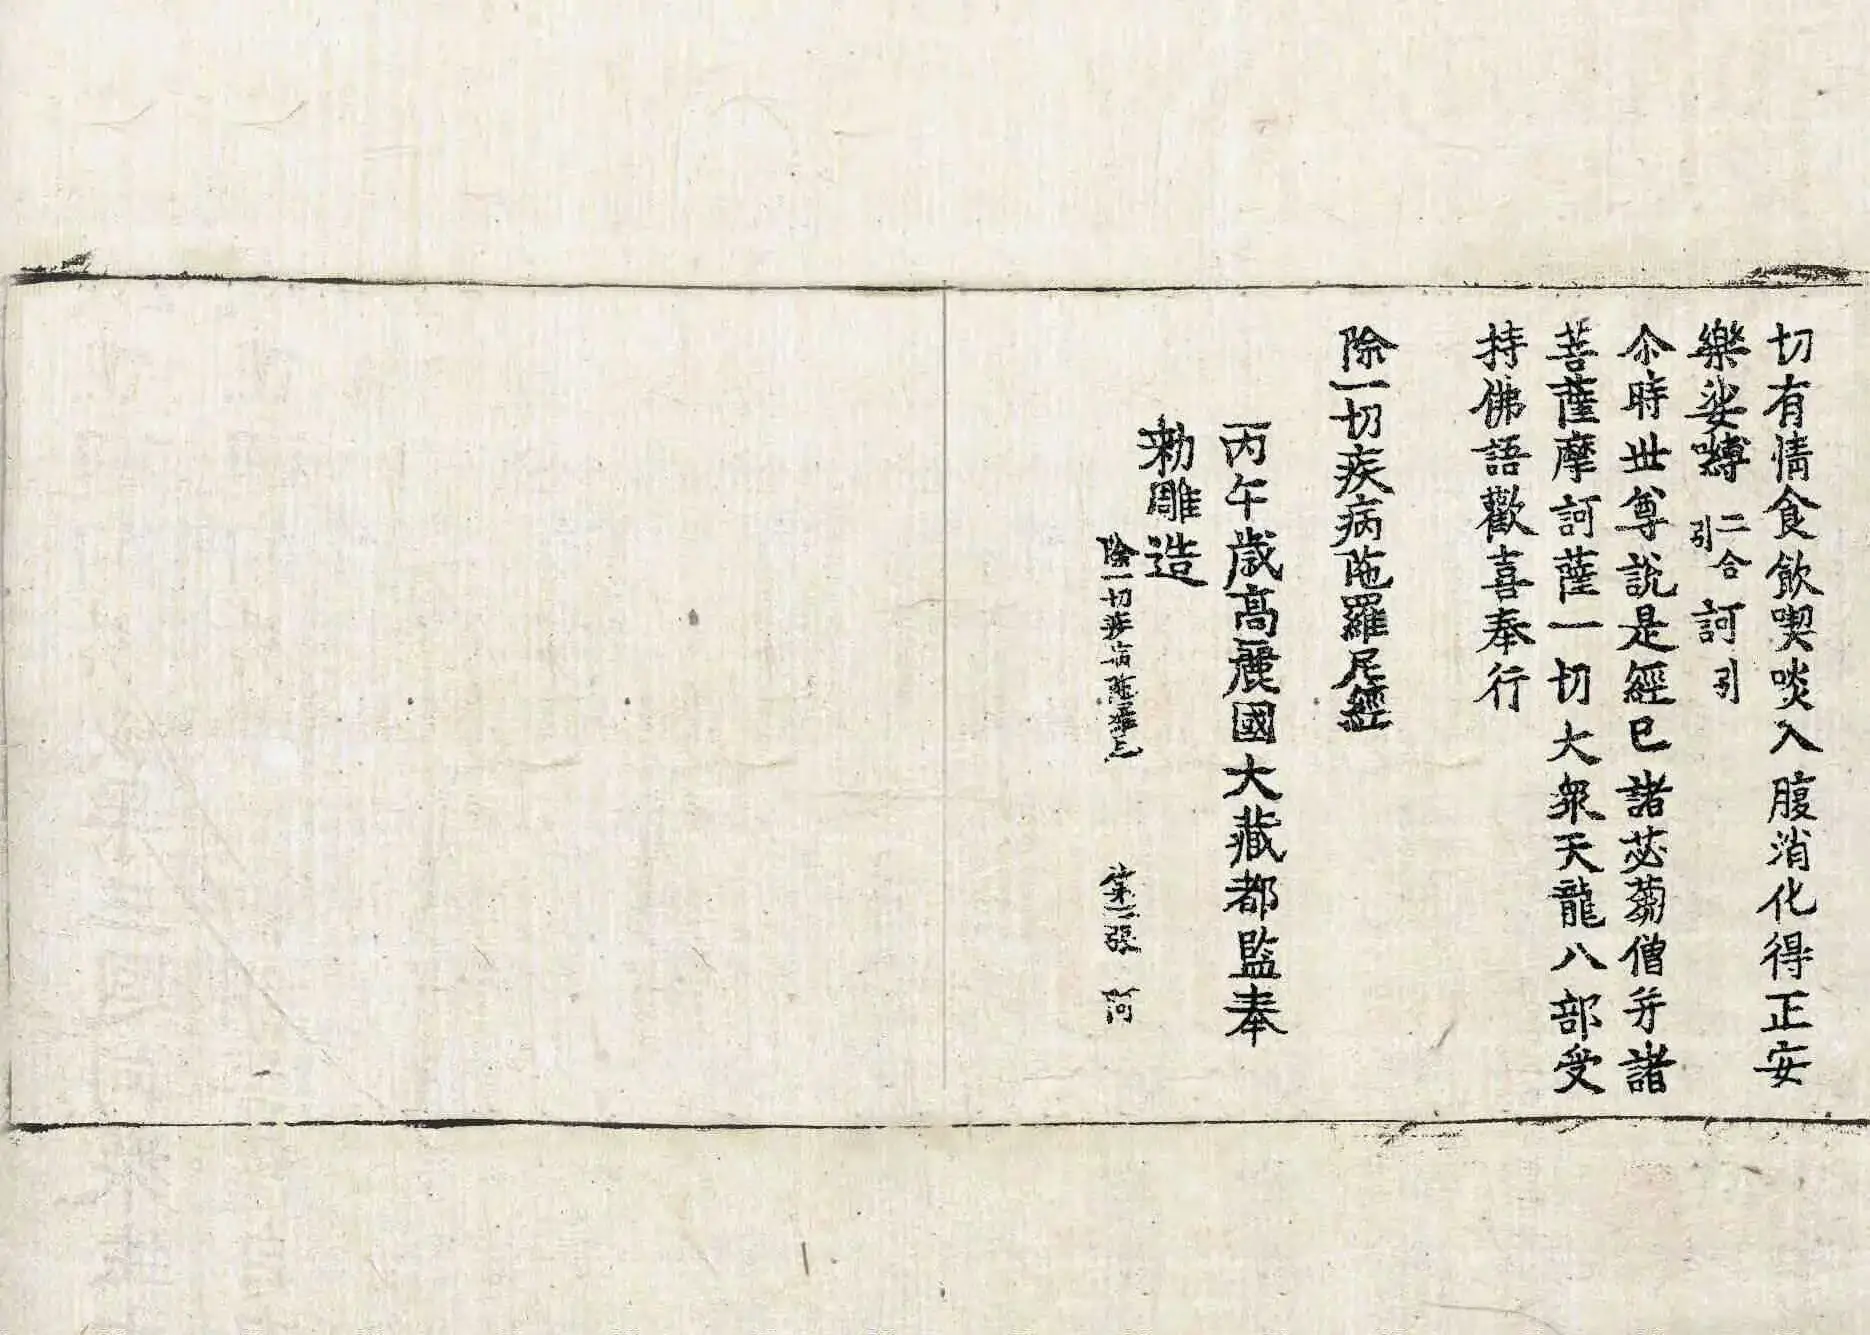 切有情食飲喫啖入腹消化得正安
樂娑嚩二合引訶引
尒時世尊說是經已諸苾蒭僧并諸
菩薩摩訶薩一切大衆天龍八部受
持佛語歡喜奉行
除一切疾病陁羅尼經
丙午歲高麗國大藏都監奉
勅雕造
除一切疾病陁羅尼 第二張 阿